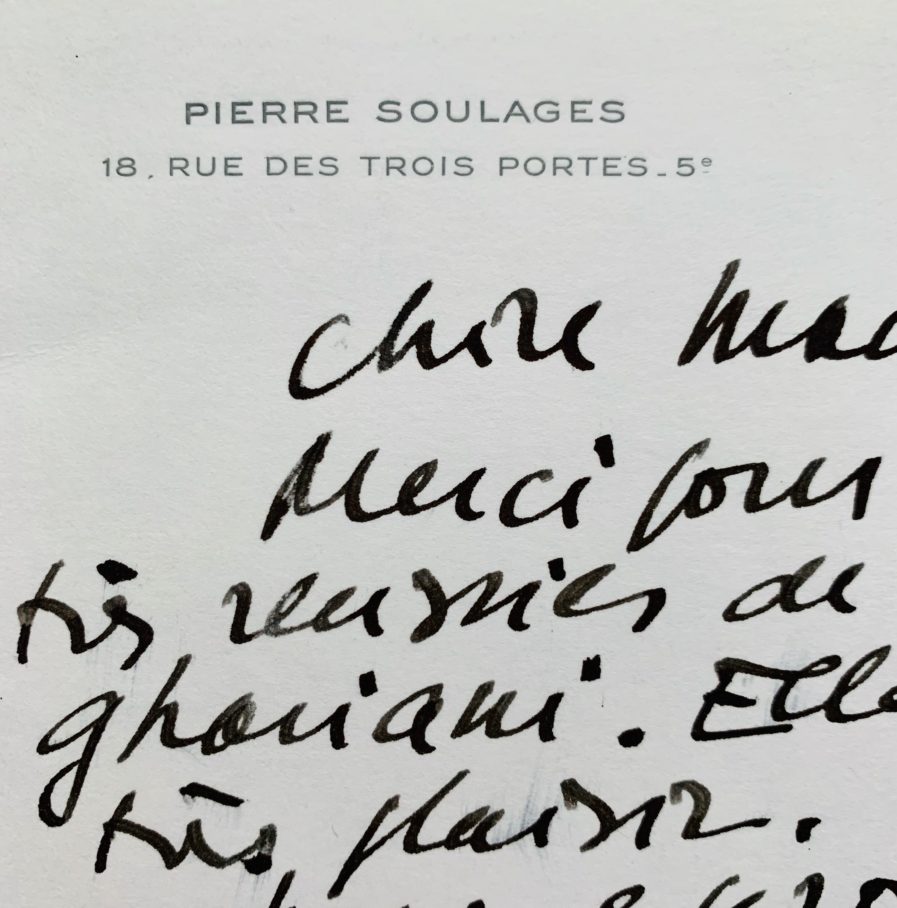 PIERRE SOULAGES
18, RUE DES TROIS PORTES_5e
Chère Mad
Merci pour
très réussies de
ghariani. Elle
très plaisir.